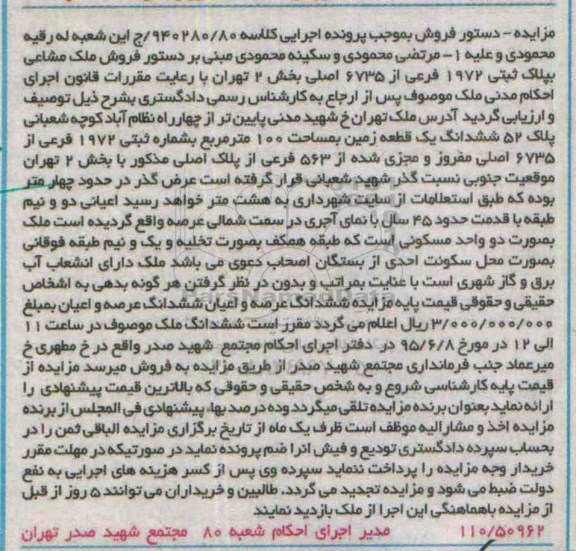 مزایده - دستور فروش بموجب پرونده اجرایی کلاسه ۹۴۰۲۸۰/۸۰/ج این شعبه له رقیه
محمودی و علیه ۱- مرتضی محمودی و سکینه محمودی مبنی بر دستور فروش ملک مشاعی
بپلاک ثبتی ۱۹۷۲ فرعی از ۶۷۳۵ اصلی بخش ۲ تهران با رعایت مقررات قانون اجرای
احکام مدنی ملک موصوف پس از ارجاع به کارشناس رسمی دادگستری بشرح ذیل توصیف
و ارزیابی گردید آدرس ملک تهران خ شهید مدنی پایین تر از چهارراه نظام آباد کوچه شعبانی
پلاک ۵۲ ششدانگ یک قطعه زمین بمساحت ۱۰۰ مترمربع بشماره ثبتی ۱۹۷۲ فرعی از
۶۷۳۵ اصلی مفروز و مجزی شده از ۵۶۳ فرعی از پلاک اصلی مذکور با بخش ۲ تهران
موقعیت جنوبی نسبت گذر شهید شعبانی قرار گرفته است عرض گذر در حدود چهار متر
بوده که طبق استعلامات از سایت شهرداری به هشت متر خواهد رسید اعیانی دو و نیم
طبقه با قدمت حدود ۴۵ سال با نمای آجری در سمت شمالی عرصه واقع گردیده است ملک
بصورت دو واحد مسکونی است که طبقه همکف بصورت تخلیه و یک و نیم طبقه فوقانی
بصورت محل سکونت احدی از بستگان اصحاب دعوی می باشد ملک دارای انشعاب آب
برق و گاز شهری است با عنایت بمراتب و بدون در نظر گرفتن هر گونه بدهی به اشخاص
حقیقی و حقوقی قیمت پایه مزایده ششدانگ عرصه و اعیان ششدانگ عرصه و اعیان بمبلغ
۳/۰۰۰/۰۰۰/۰۰۰ ریال اعلام می گردد مقرر است ششدانگ ملک موصوف در ساعت ۱۱
الی ۱۲ در مورخ ۹۵/۶/۸ در دفتر اجرای احکام مجتمع شهید صدر واقع در خ مطهری خ
میرعماد جنب فرمانداری مجتمع شهید صدر از طریق مزایده به فروش میرسد مزایده از
قیمت پایه کارشناسی شروع و به شخص حقیقی و حقوقی که بالاترین قیمت پیشنهادی را
ارائه نماید بعنوان برنده مزایده تلقی میگردد وده درصد بهاء پیشنهادی فی المجلس از برنده
مزایده اخذ و مشارالیه موظف است ظرف یک ماه از تاریخ برگزاری مزایده الباقی ثمن را در
بحساب سپرده دادگستری تودیع و فیش انرا ضم پرونده نماید در صورتیکه در مهلت مقرر
خریدار وجه مزایده را پرداخت ننماید سپرده وی پس از کسر هزینه های اجرایی به نفع
دولت ضبط می شود و مزایده تجدید می گردد. طالبین و خریداران می توانند ۵ روز از قبل
از مزایده باهماهنگی این اجرا از ملک بازدید نمایند
۱۱۰/۵۰۹۶۲ مدیر اجرای احکام شعبه ۸۰ مجتمع شهید صدر تهران